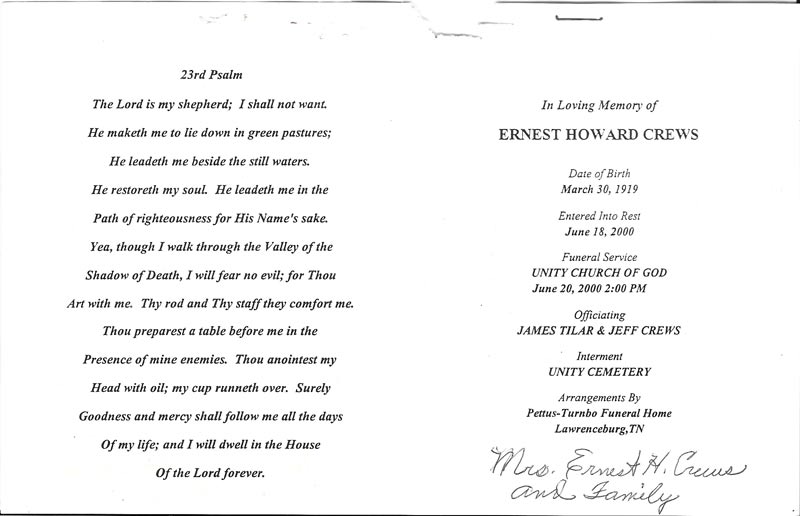 23rd Psalm
The Lord is my shepherd; I shall not want.
He maketh me to lie down in green pastures;
He leadeth me beside the still waters.
He restoreth my soul. He leadeth me in the
Path of righteousness for His Name's sake.
Yea, though I walk through the Valley of the
Shadow of Death, I will fear no evil; for Thou
Art with me. Thy rod and Thy staff they comfort me.
Thou preparest a table before me in the
Presence of mine enemies. Thou anointest my
Head with oil; my cup runneth over. Surely
Goodness and mercy shall follow me all the days
Of my life; and I will dwell in the House
Of the Lord forever.
In Loving Memory of
ERNEST HOWARD CREWS
Date of Birth
March 30, 1919
Entered Into Rest
June 18, 2000
Funeral Service
UNITY CHURCH OF GOD
June 20, 2000 2:00 PM
Officiating
JAMES TILAR & JEFF CREWS
Interment
UNITY CEMETERY
Arrangements By
Pettus-Turnbo Funeral Home
Lawrenceburg,TN
Mrs. Ernest H. Crews
and Family